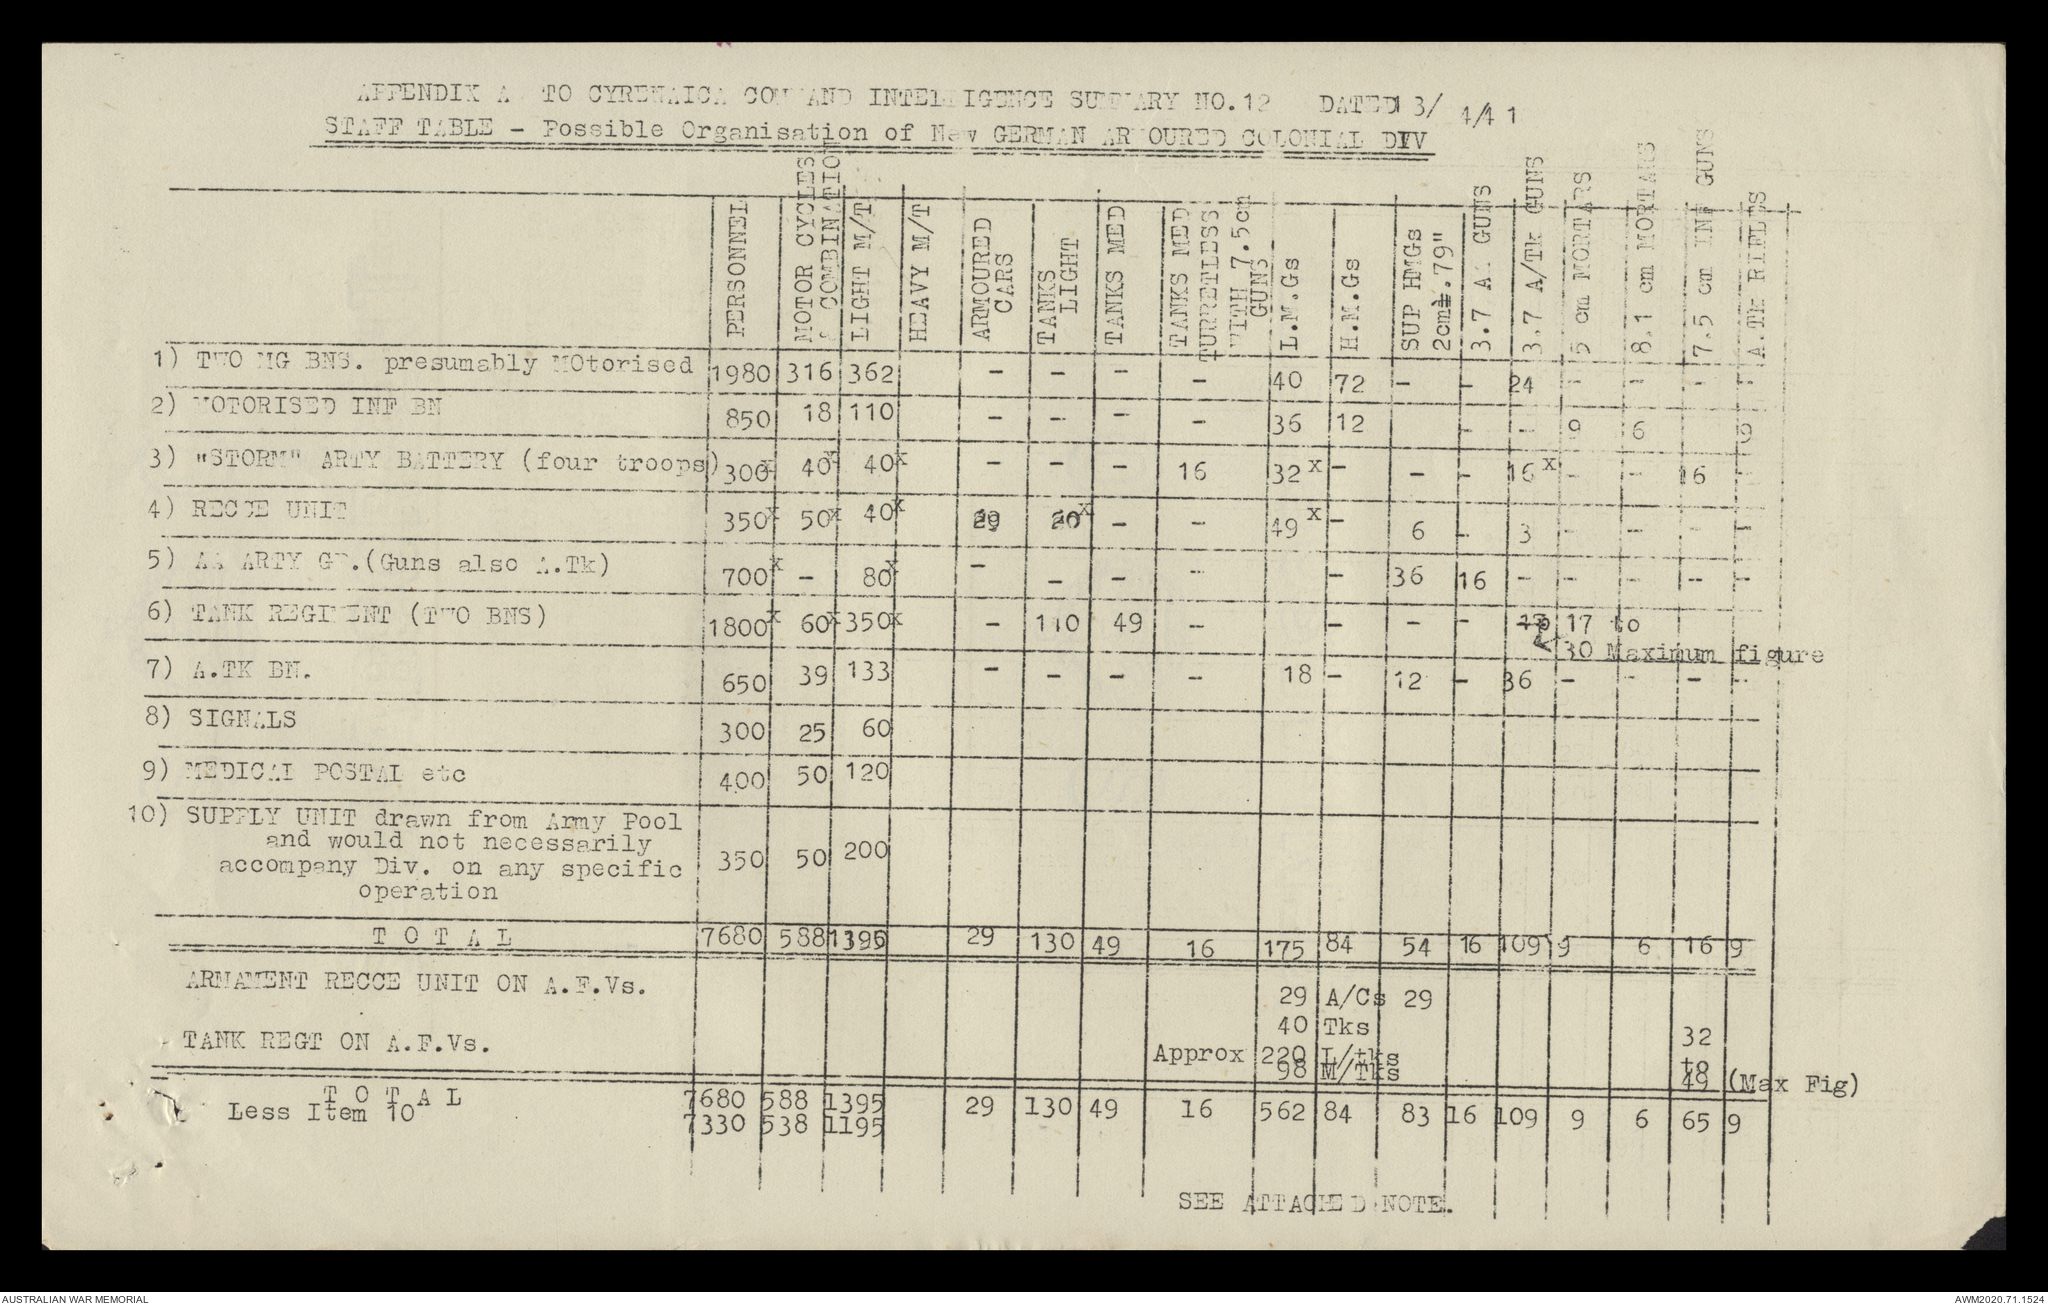 APPENDIX A TO CYRENAICA COMMAND INTELLIGENCE SUMMARY NO.12 DATED 13/4/41
STAFF TABLE - Possible Organisation of New GERMAN ARMOURED COLONIAL DIV
PERSONNEL
MOTOR CYCLES & COMBINATION
LIGHT M/T
HEAVY M/T
ARMOURED CARS
TANKS LIGHT
TANKS MED
TANKS MED TURRETLESS WITH 7.5cm GUNS
L.M.Gs
H.M.Gs
SUP HMGs 2cm .79"
3.7 AA GUNS
3.7 A/Tk GUNS
5 cm MORTARS
8.1 cm MORTARS
7.5 cm INF GUNS
A.Tk RIFLES
1) TWO MG BNS. presumably MOtorised 1980 316 362 - - - - 40 72 - - 24 - - - -
2) MOTORISED INF BN 850 18 110 - - - - 36 12 - - 9 6 9
3) "STORM" ARTY BATTERY (four troops) 300x 40x 40x - - - 16 32x - - - 16x - - 16 -
4) RECCE UNIT 350x 50x 40x 29 20x - - 49x - 6 - 3 - - - -
5) AA ARTY GP.(Guns also A.Tk) 700x - 80x - - - - - 36 16 - - - - -
6) TANK REGIMENT (TWO BNS) 1800x 60x 350x - 110 49 - - - - - 17 to
30 Maximum figure
7) A.TK BN. 650 39 133 - - - - 18 - 12 - 36 - - - -
8) SIGNALS 300 25 60
9) MEDICAL POSTAL etc 400 50 120
10) SUPPLY UNIT drawn from Army Pool
and would not necessarily
accompany Div. on any specific
operation 350 50 200
T O T A L 7680 588 1395 29 130 49 16 175 84 54 16 109 9 6 16 9
ARMAMENT RECCE UNIT ON A.F.Vs. 29 A/Cs 29
40 Tks
TANK REGT ON A.F.Vs. Approx 220 L/tks 32
98 M/Tks to
49 (Max Fig)
T O T A L 7680 588 1395 29 130 49 16 562 84 83 16 109 9 6 65 9
Less Item 10 7330 538 1195
SEE ATTACHED NOTE.
AUSTRALIAN WAR MEMORIAL
AWM2020.71.1524